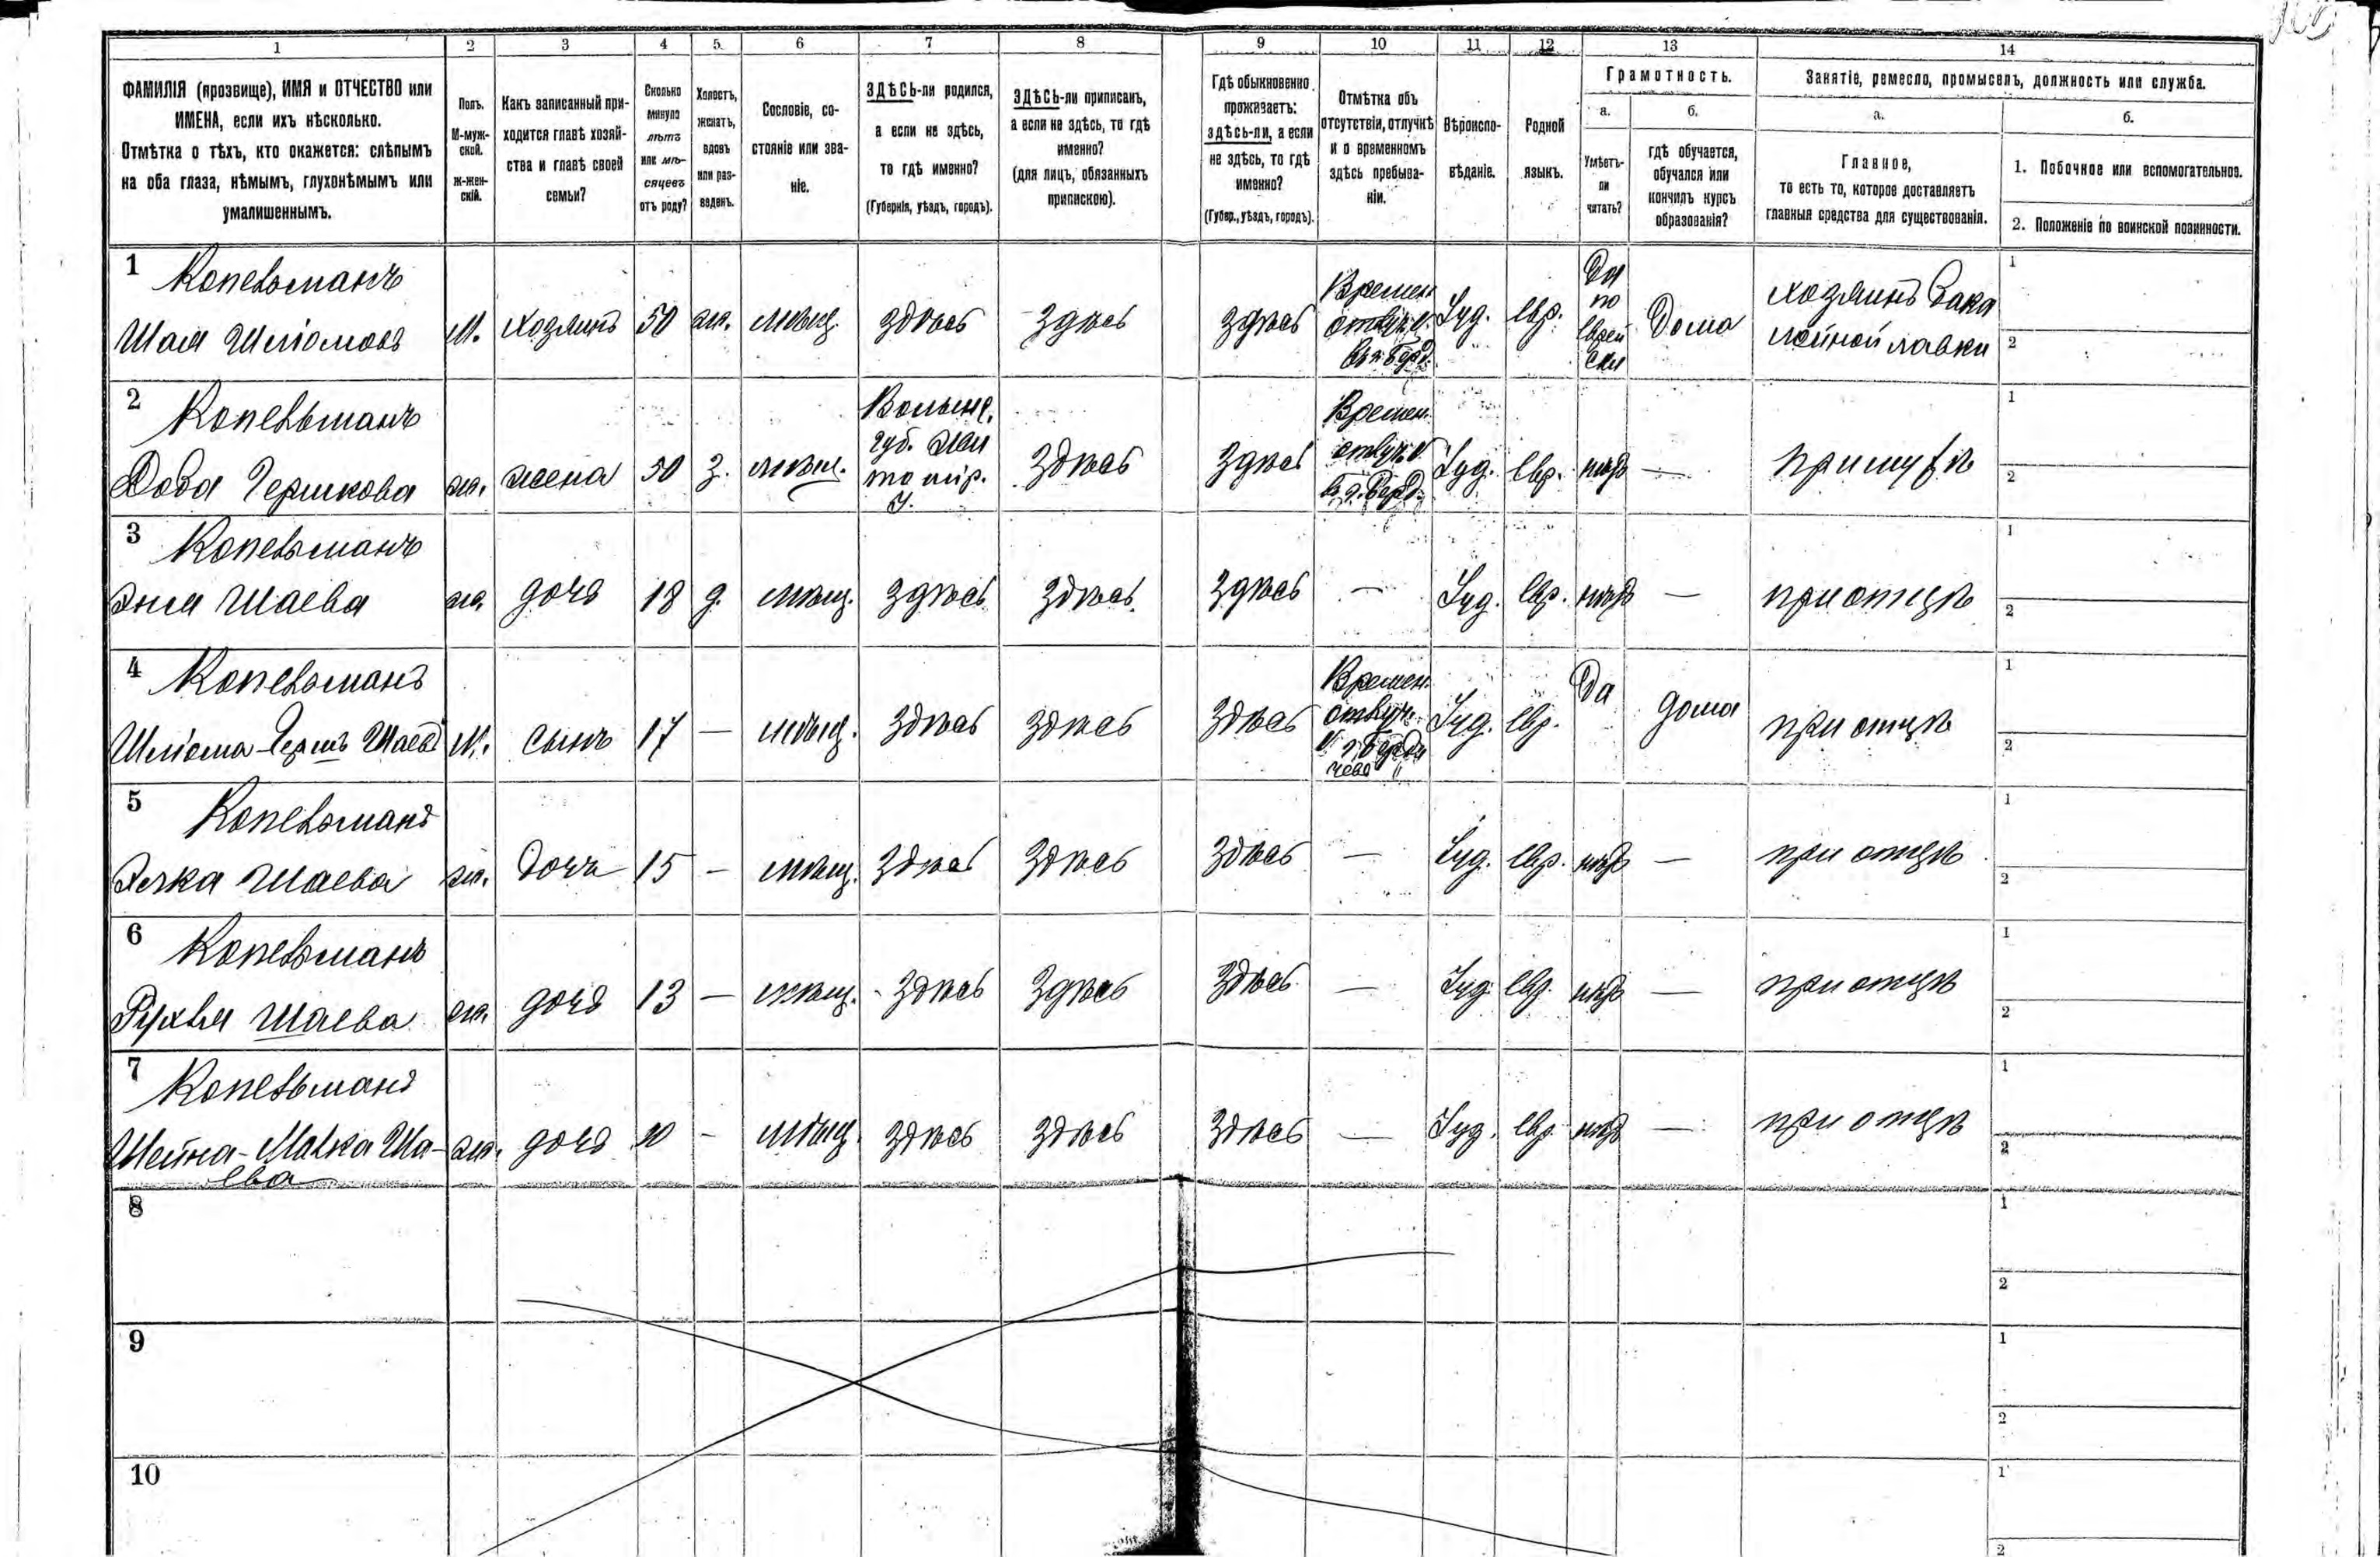 1 2 3 4 5. 6 7 8 9 10 11 12 13 14
ФАМИЛІЯ (прозвище), ИМЯ и ОТЧЕСТВО или
ИМЕНА, если ихъ нѣсколько.
Отмѣтка о тѣхъ, кто окажется: слѣпымъ
на оба глаза, нѣмымъ, глухонѣмымъ или
умалишеннымъ.
Полъ.
М-муж-
ской.
Ж-жен-
скій.
Какъ записанный при-
ходится главѣ хозяй-
ства и главѣ своей
семьи?
Сколько
минуло
лѣтъ
или мѣ-
сяцевъ
отъ роду?
Холостъ,
женатъ,
вдовъ
или раз-
веденъ.
Сословіе, со-
стояніе или зва-
ніе.
ЗДѢСЬ-ли родился,
а если не здѣсь,
то гдѣ именно?
(Губернія, уѣздъ, городъ).
ЗДѢСЬ-ли приписанъ,
а если не здѣсь, то гдѣ
именно?
(для лицъ, обязанныхъ
припискою).
Гдѣ обыкновенно
проживаетъ:
здѣсь-ли, а если
не здѣсь, то гдѣ
именно?
(Губер., уѣздъ, городъ).
Отмѣтка объ
отсутствіи, отлучкѣ
и о временномъ
здѣсь пребыва-
ніи.
Вѣроиспо-
вѣданіе.
Родной
языкъ.
Грамотность.
а.
Умѣетъ-
ли
читать?
б.
гдѣ обучается,
обучался или
кончилъ курсъ
образованія?
Занятіе, ремесло, промыселъ, должность или служба.
а.
Главное,
то есть то, которое доставляетъ
главныя средства для существованія.
б.
1. Побочное или вспомогательное.
2. Положеніе по воинской повинности.
1 Копельманъ
Шая Шліомовъ
М. хозяинъ 50 ж. мѣщ. здѣсь здѣсь здѣсь
Времен.
отлуч.
въ г. Берд.
Іуд. Евр.
Да
по
Еврей
ски
Дома
хозяинъ бака
лейной лавки
1
2
2 Копельманъ
Доба Гершкова
ж. жена 50 з. мѣщ.
Волынс.
губ. Жи
томир.
У.
здѣсь здѣсь
Времен.
отлуч.
въ г. Берд.
Іуд. Евр. нѣтъ — при мужѣ
1
2
3 Копельманъ
Эня Шаева
ж. дочь 18 д. мѣщ. здѣсь здѣсь здѣсь — Іуд. Евр. нѣтъ — при отцѣ
1
2
4 Копельманъ
Шліома-Гершъ Шаевъ
М. сынъ 17 — мѣщ. здѣсь здѣсь здѣсь
Времен.
отлуч.
в г. Берди
чевѣ
Іуд. Евр. Да дома при отцѣ
1
2
5 Копельманъ
Шаева
ж. дочь 15 — мѣщ. здѣсь здѣсь здѣсь — Іуд. Евр. нѣтъ — при отцѣ
1
2
6 Копельманъ
Рухля Шаева
ж. дочь 13 — мѣщ. здѣсь здѣсь здѣсь — Іуд. Евр. нѣтъ — при отцѣ
1
2
7 Копельманъ
Шейна-Малка Ша-
ева
ж. дочь 10 — мѣщ. здѣсь здѣсь здѣсь — Іуд. Евр. нѣтъ — при отцѣ
1
2
8
1
2
9
1
2
10
1
2